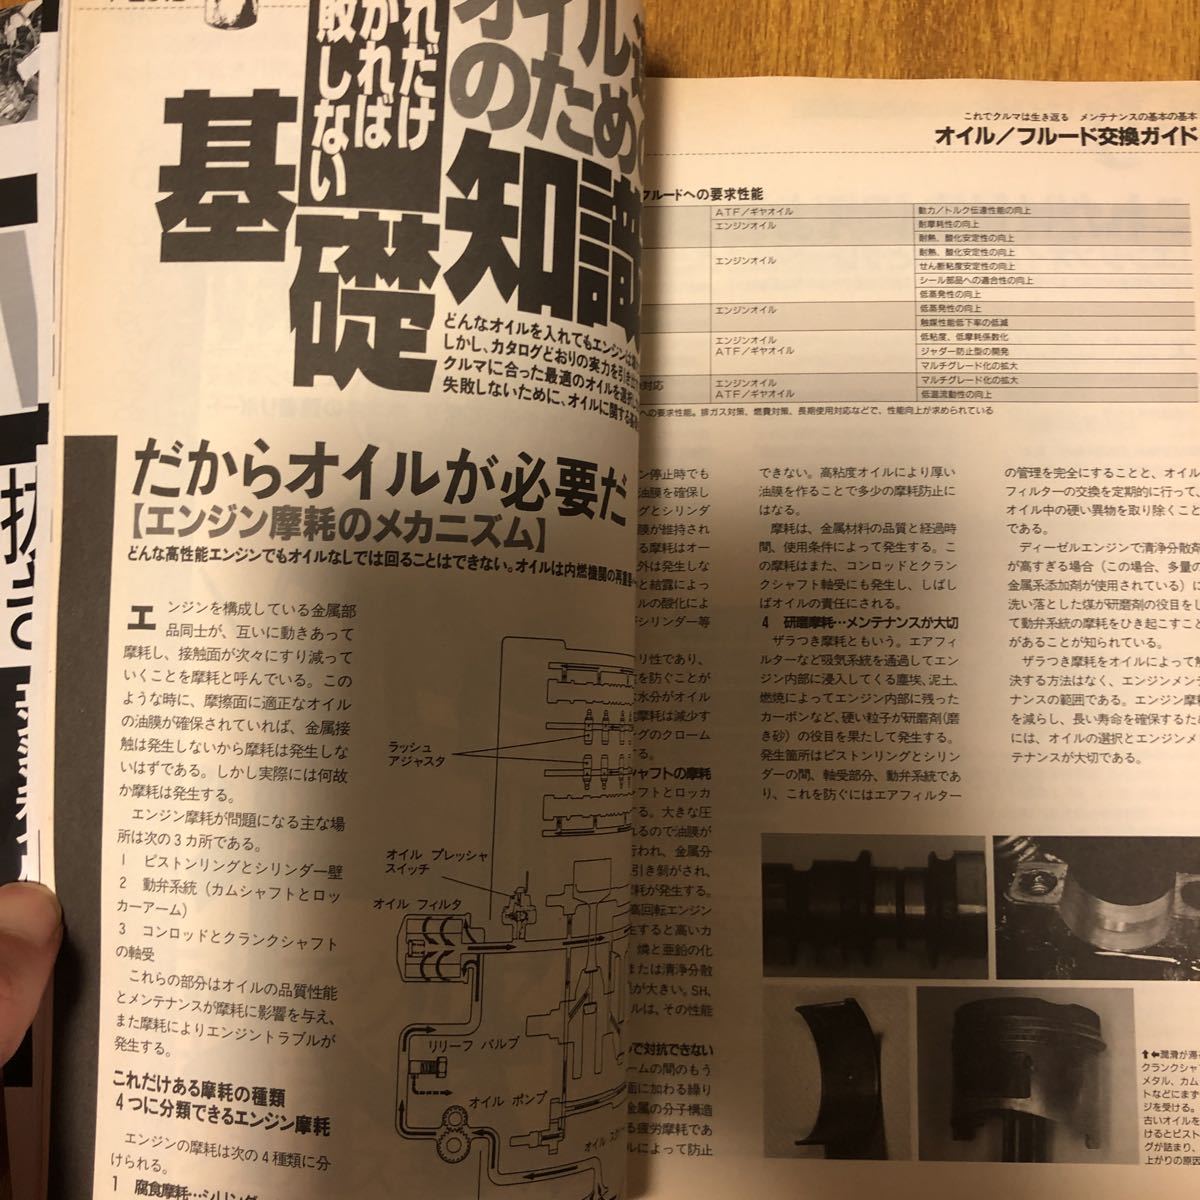 れだけ
かれば
敗しない
オイル
のため
基礎
知識
どんなオイルを入れてもエンジンは
しかし、カタログどおりの実力を引き出
クルマに合った最適のオイルを選択し
失敗しないために、オイルに関する基
だからオイルが必要だ
【エンジン摩耗のメカニズム】
どんな高性能エンジンでもオイルなしでは回ることはできない。オイルは内燃機関の再重要
エンジンを構成している金属部
品同士が、互いに動きあって
摩耗し、接触面が次々にすり減って
いくことを摩耗と呼んでいる。この
ような時に、摩擦面に適正なオイル
の油膜が確保されていれば、金属接
触は発生しないから摩耗は発生しな
いはずである。しかし実際には何故
か摩耗は発生する。
エンジン摩耗が問題になる主な場
所は次の3カ所である。
1 ピストンリングとシリンダー壁
2 動弁系統（カムシャフトとロッ
カーアーム）
3 コンロッドとクランクシャフト
の軸受
これらの部分はオイルの品質性能
とメンテナンスが摩耗に影響を与え、
また摩耗によりエンジントラブルが
発生する。
これだけある摩耗の種類
4つに分類できるエンジン摩耗
エンジンの摩耗は次の4種類に分
けられる。
1 腐食摩耗…シリンダ
ラッシュ
アジャスタ
オイル プレッシャ
スイッチ
オイル フィルタ
リリーフ バルブ
オイル ポンプ
オイル ス
これでクルマは生き返る メンテナンスの基本の基本
オイル／フルード交換ガイド
フルードへの要求性能
ATF／ギヤオイル 動力／トルク伝達性能の向上
エンジンオイル 耐摩耗性の向上
耐熱、酸化安定性の向上
エンジンオイル 耐熱、酸化安定性の向上
せん断粘度安定性の向上
シール部品への適合性の向上
低蒸発性の向上
エンジンオイル 低蒸発性の向上
触媒性能低下率の低減
エンジンオイル 低粘度、低摩耗係数化
ATF／ギヤオイル ジャダー防止型の開発
マルチグレード化の拡大
対応 エンジンオイル マルチグレード化の拡大
ATF／ギヤオイル 低温流動性の向上
への要求性能。排ガス対策、燃費対策、長期使用対応などで、性能向上が求められている
ン停止時でも
油膜を確保し
グとシリンダ
膜が維持され
る摩耗はオー
外は発生しな
と結露によっ
ルの酸化によ
シリンダー等
リ性であり、
を防ぐことが
水分がオイル
摩耗は減少す
ングのクローム
る。
シャフトの摩耗
フトとロッカ
する。大きな圧
れるので油膜が
行われ、金属分
引き剝がされ、
耗が発生する。
高回転エンジン
生すると高いカ
燐と亜鉛の化
または清浄分散
が大きい。SH、
ルは、その性能
で対抗できない
ームの間のもう
面に加わる繰り
金属の分子構造
る疲労摩耗であ
ルによって防止
できない。高粘度オイルにより厚い
油膜を作ることで多少の摩耗防止に
はなる。
摩耗は、金属材料の品質と経過時
間、使用条件によって発生する。こ
の摩耗はまた、コンロッドとクラン
クシャフト軸受にも発生し、しばし
ばオイルの責任にされる。
4 研磨摩耗…メンテナンスが大切
ザラつき摩耗ともいう。エアフィ
ルターなど吸気系統を通過してエン
ジン内部に浸入してくる塵埃、泥土、
燃焼によってエンジン内部に残った
カーボンなど、硬い粒子が研磨剤（磨
き砂）の役目を果たして発生する。
発生箇所はピストンリングとシリン
ダーの間、軸受部分、動弁系統であ
り、これを防ぐにはエアフィルター
の管理を完全にすることと、オイル
フィルターの交換を定期的に行って、
オイル中の硬い異物を取り除くこと
である。
ディーゼルエンジンで清浄分散剤
が高すぎる場合（この場合、多量の
金属系添加剤が使用されている）に
洗い落とした煤が研磨剤の役目をし
て動弁系統の摩耗をひき起こすこと
があることが知られている。
ザラつき摩耗をオイルによって解
決する方法はなく、エンジンメンテ
ナンスの範囲である。エンジン摩耗
を減らし、長い寿命を確保するため
には、オイルの選択とエンジンメン
テナンスが大切である。
⬆⬅潤滑が滞
クランクシャ
メタル、カム
トなどにまず
ジを受ける。
古いオイルを
けるとピスト
グが詰まり、
上がりの原因